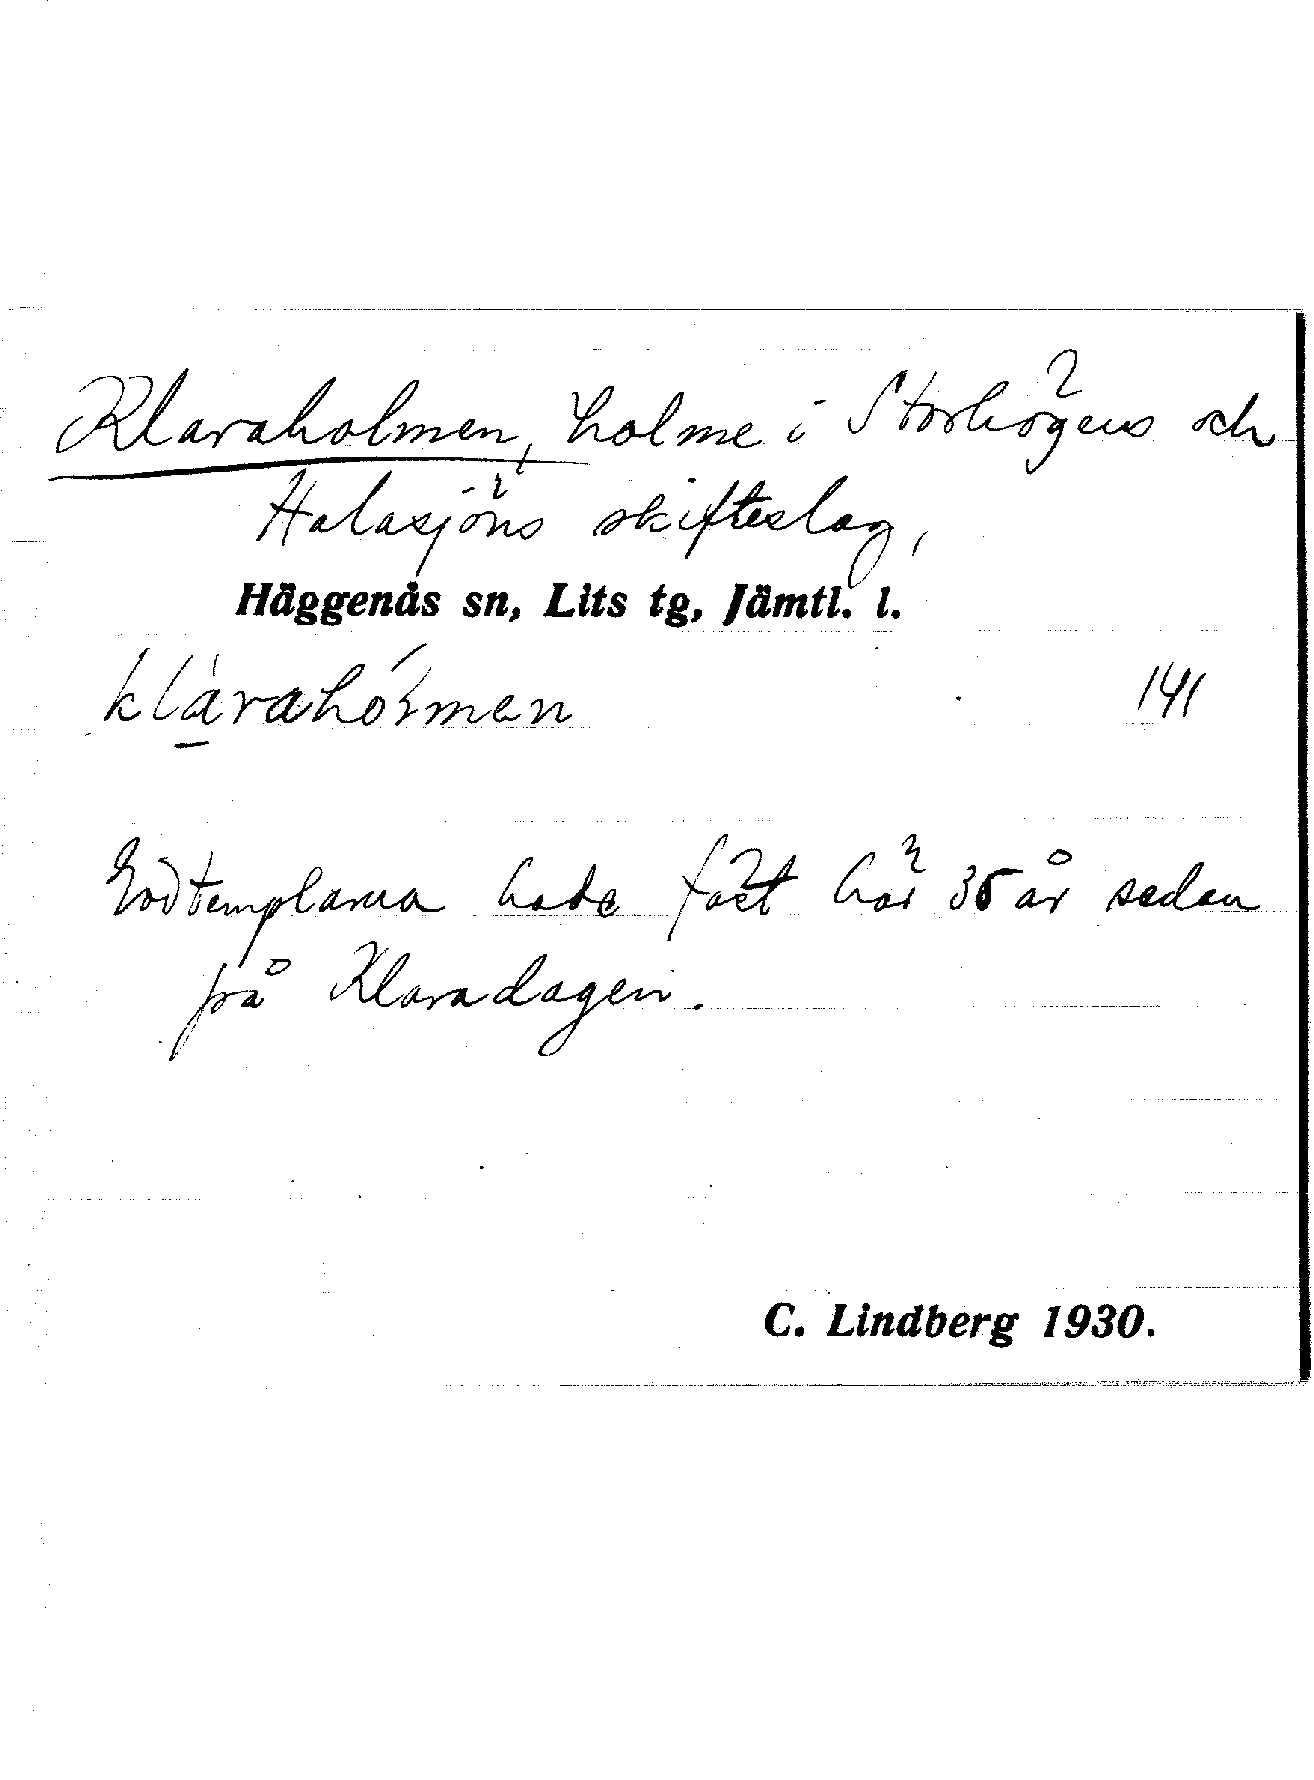 Klaraholmen, holme i Storhögens och
Halasjöns skifteslag,
Häggenås sn, Lits tg, Jämtl. l.
klàrahólmen
141
Godtemplarna hade fäst här 35 år sedan
på Klaradagen.
C. Lindberg 1930.